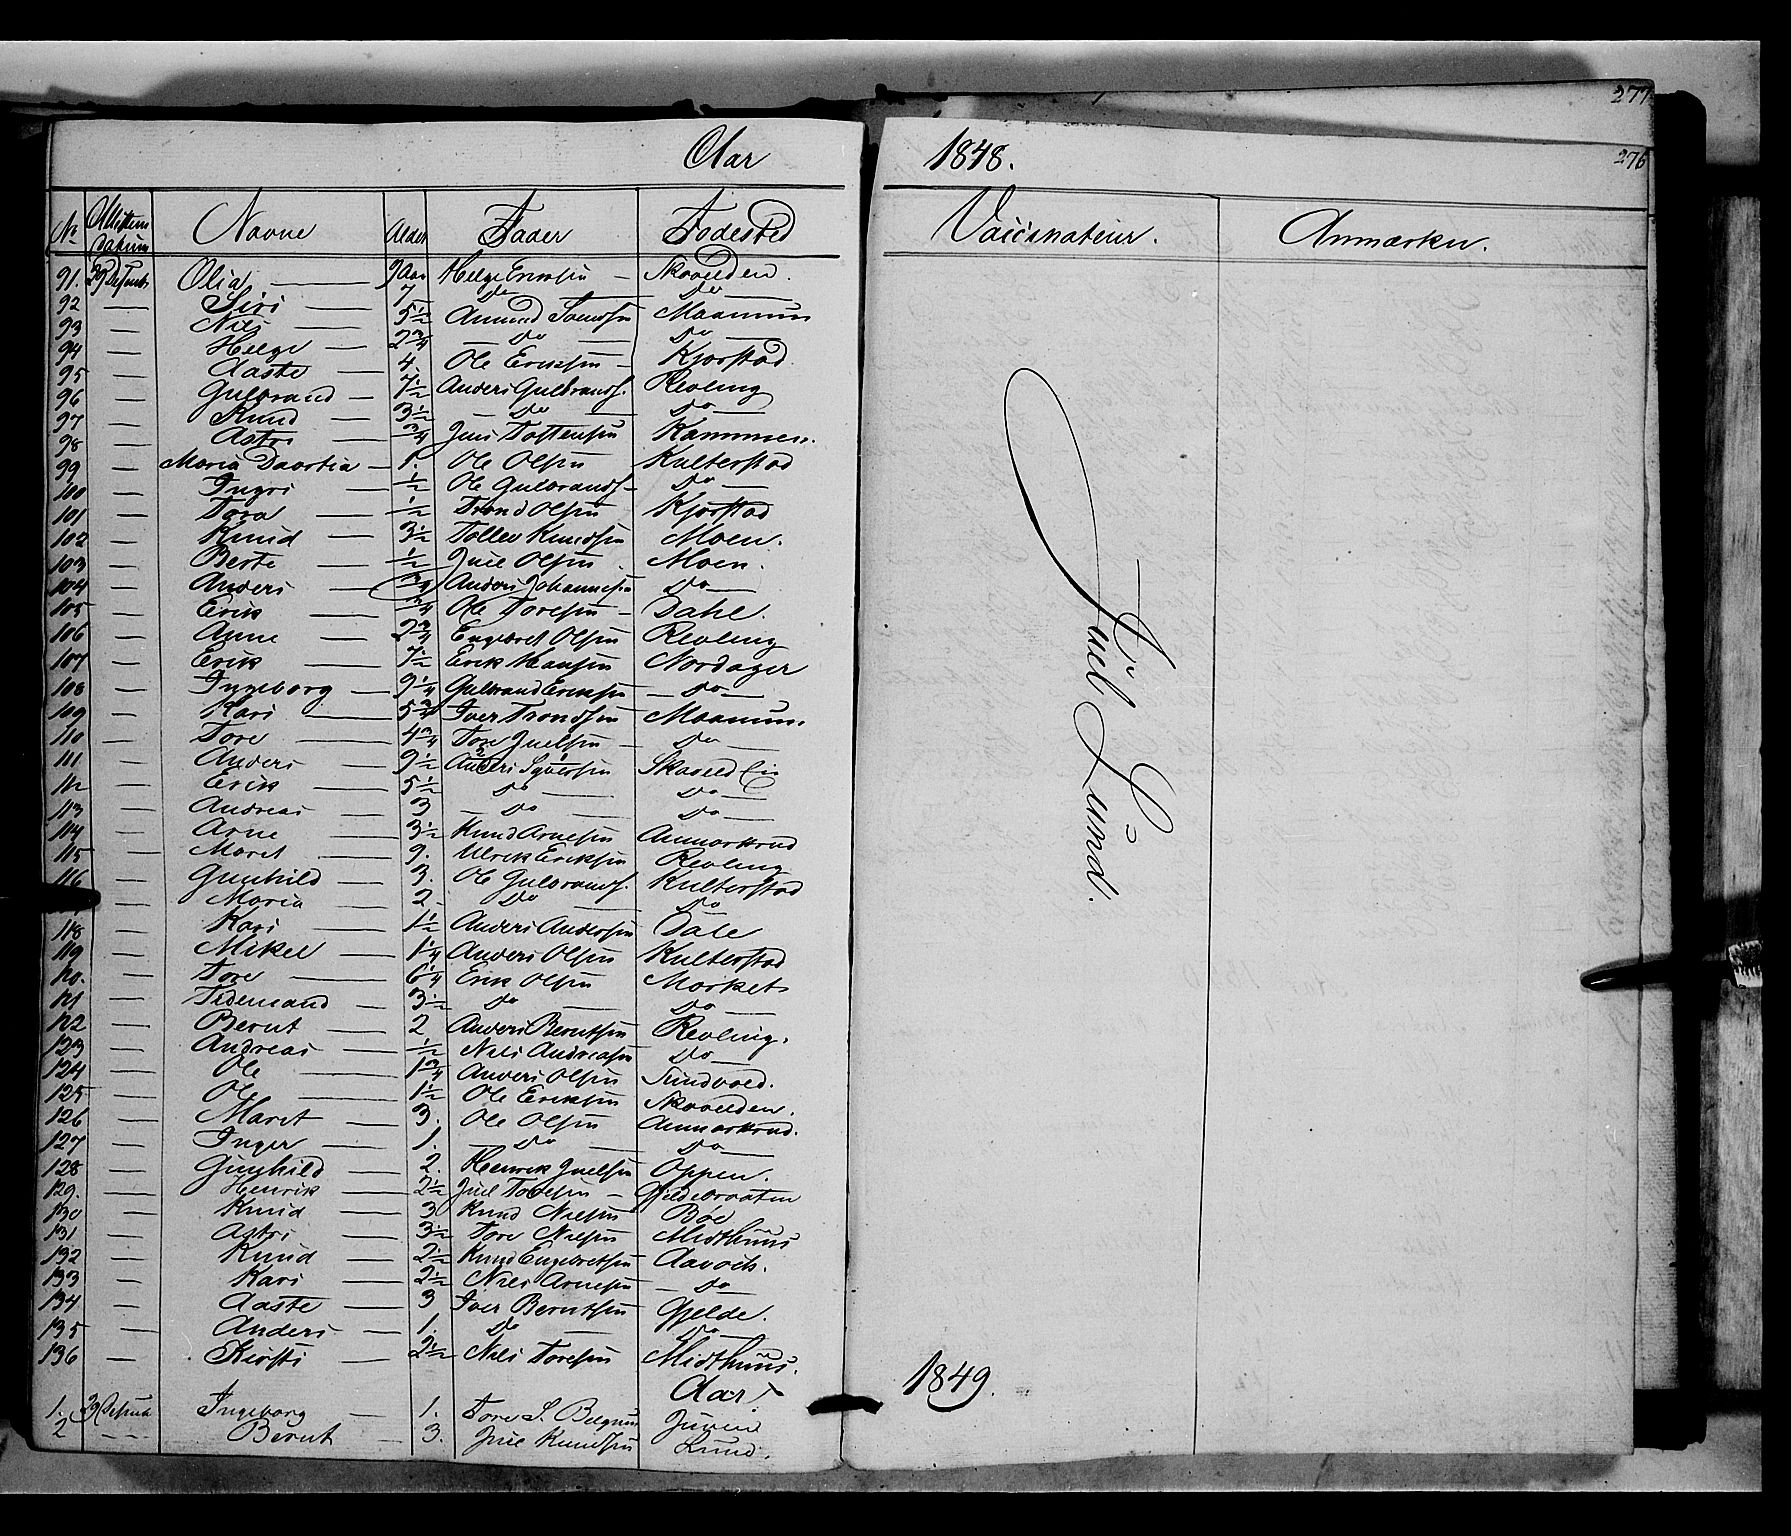 277
276
Aar 1848.
No Attestens Datum Navne Alder Fader Fødested Vaccinateur. Anmærkn.
91. 29 Desembr Olia — 9 Aar Helge Eriksen — Skavelden.
92 — Siri — 7 — Do — Do —
93 — Nils — 5½ Amund Svendsen Moamun
94 — Helge — 2¾ — Do — Do —
95 — Aaste — 4. Ole Eriksen — Kjorstad.
96 — Gulbrand — 7½ Anders Gulbrands. Revling
97 — Knud — 3½ — Do — Do —
98 — Astri — ¾ Juul Tostensen Kammen.
99 — Maria Daartia — 1. Ole Olsen Kulterstad
100 — Ingri — ½ Ole Gulbrands — Do —
101 — Tora — ½ Trond Olsen Kjorstad
102 — Knud — 3½ Tollev Knudsen Moen.
103 — Berte — ½ Juel Olsen Moen.
104 — Anders — ¾ Anders Johannesen Do —
105 — Erik — ¾ Ole Toresen — Dahl.
106 — Anne — 2¾ Engebret Olsen Revling
107 — Erik — 7½ Erik Hansen Nordager
108 — Ingeborg — 9¼ Gulbrand Eriksen — Do —
109 — Kari — 5¾ Iver Trondsen Moamun.
110 — Tore — 4¾ Tore Juelsen — Do —
111 — Anders — 9½ Anders Syversen Skaveld Eie
112 — Erik — 5½ Do — Do —
113 — Andreas — 3 — Do — Do —
114 — Arne — 3½ Knud Arnesen Anmarkrud
115 — Maret — 9. Ulrik Eriksen Revling
116 — Gunhild — 3. Ole Gulbrands. Kulterstad
— Maria — 2. Do — Do
118 — Kari — 1½ Anders Andersen Dale
119 — Mikel — 1¼ Anders Olsen Kulterstad
120. — Tore — 6¼ Erik Olsen Morket
121 — Tidemand — 3½ Do — Do —
122 — Bernt — 2 Anders Berntsen Revling.
123 — Andreas — ½ Nils Andreasen Do —
124 — Ole — 1¾ Anders Olsen Sundvold.
125 — Ole — 1½ Ole Eriksen Skavelden.
126 — Maret — 3. Ole Olsen Anmarkrud.
127 — Inger — 1. Do — Do —
128 — Gunhild — 2. Henrik Juelsen Oppen.
129. — Henrik — 2½ Juel Toresen — Gjeldebraaten
130 — Knud — 3 Knud Nielsen Bøe
131 — Astri — 3½ Tore Nielsen Midthuus
132 — Knud — 2½ Knud Engebretsen Aavoch.
133 — Kari — 2½ Niels Arnesen — Do —
134 — Aaste — 3 Iver Berntsen Gjelde.
135 — Anders — 1. Do — Do —
136 — Kirsti — 2½ Niels Toresen Midthuus.
Juel Lund.
Aar 1849.
1. 29 Ingeborg — 1. Tore S. Belgum Juveie
2 — Bernt — 3. Juel Knudsen Lund.